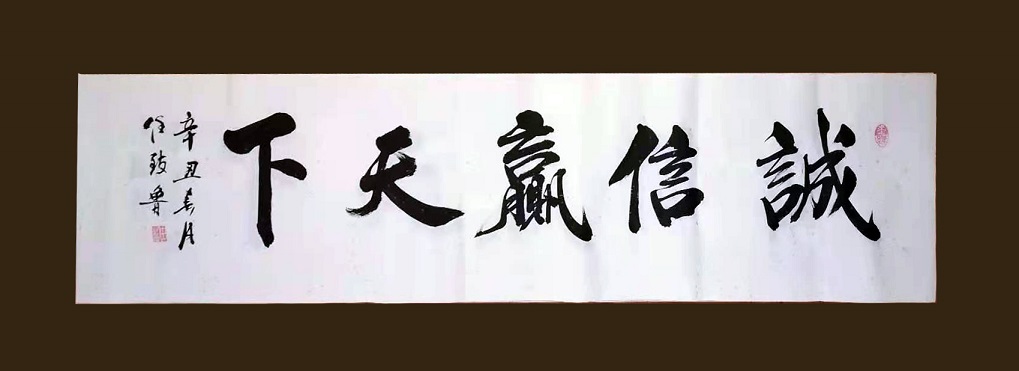 誠信贏天下
辛丑春月
任致魯